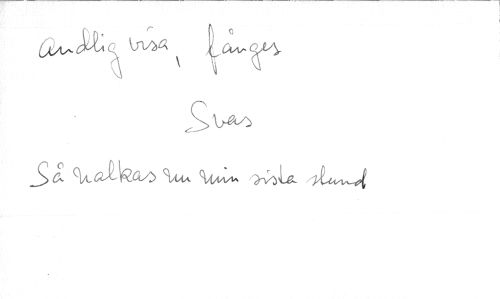 andlig visa, fånges
Svas
Så nalkas nu min sista stund